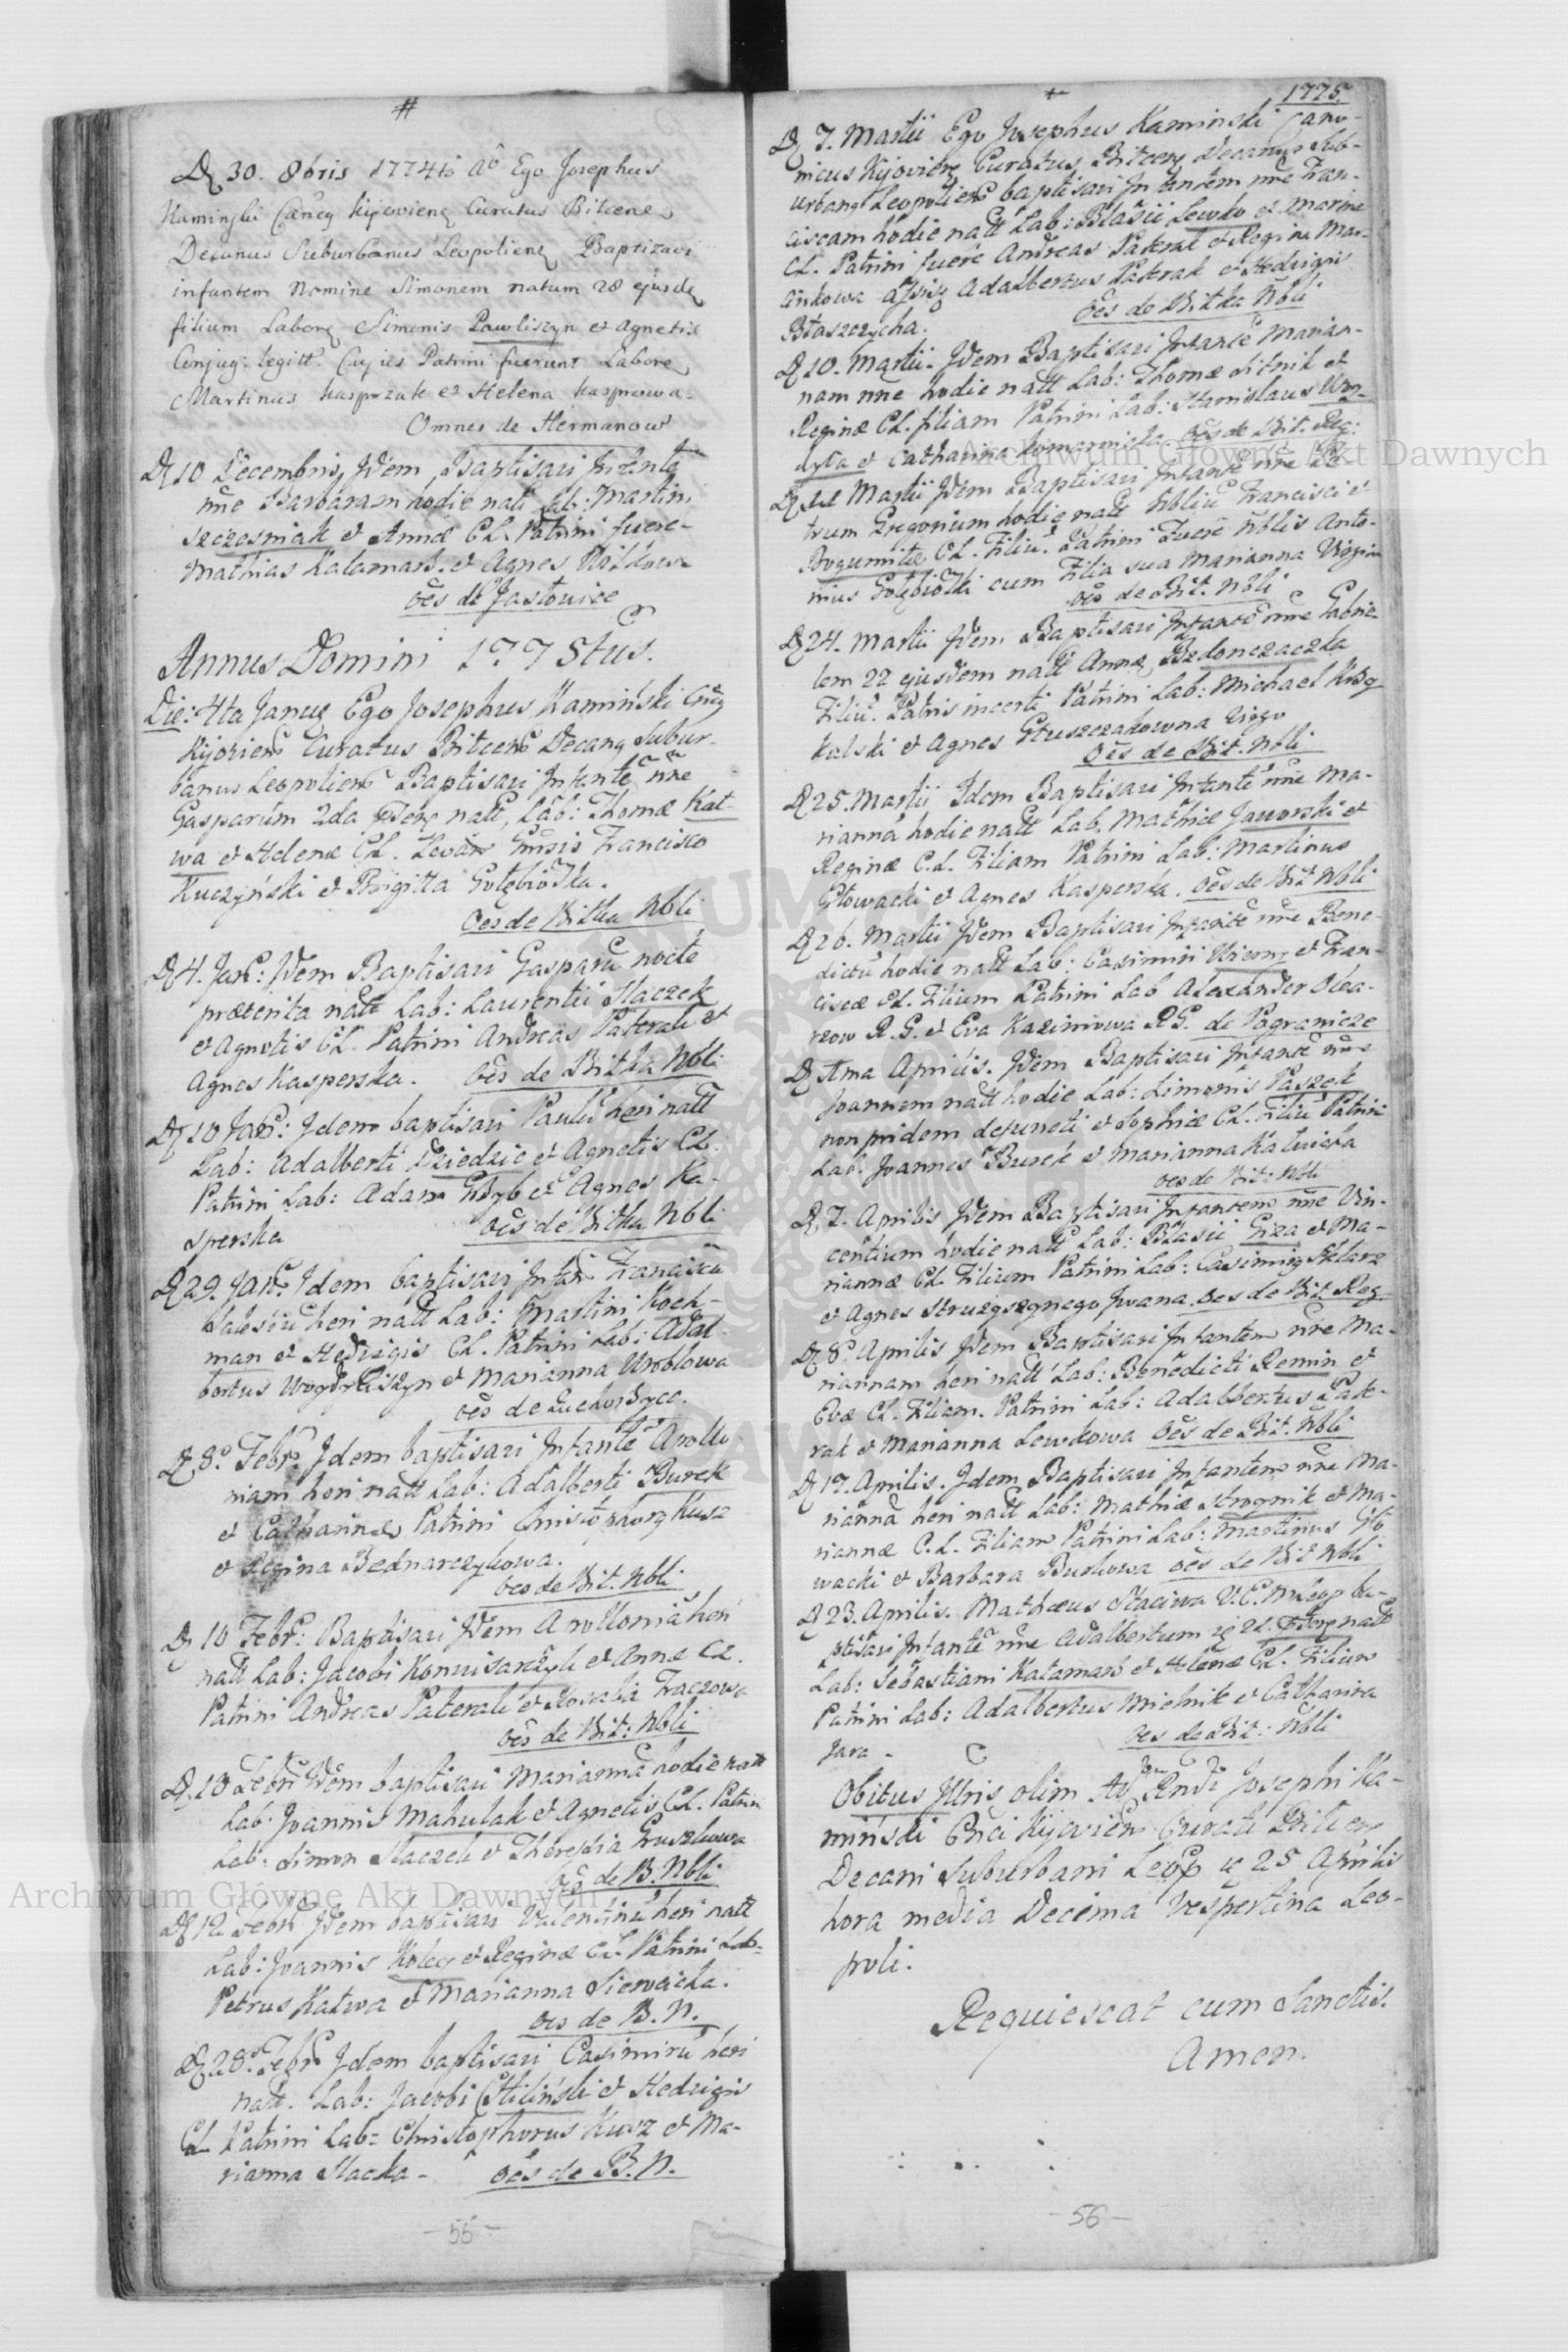 #
D 30. 8bris 1774to Ao Ego Josephus
Kaminski Kijoviens Curatus Bitcens
Decanus Suburbanus Leopoliens Baptizavi
infantem Nomine Simonem natum 28 ejusde
filium Labors Simonis Pawliszyn et Agnetis
Conjug: legitt. Cujus Patrini fuerunt Labors
Martinus Kasprzak et Helena Kasprowa
Omnes de Hermanow
D 10 Decembris Idem Baptisavi Infante
nne Barbaram hodie nati Lab: Martini
Szczesniak et Annæ C.L. Patrini fuere
Mathias Kalamarz et Agnes
oes de Jastowice
Annus Domini 1775tus.
Die: 4ta Janus Ego Josephus Kaminski
Kijoviens Curatus Bitcens Decans Subur-
banus Leopoliens Baptisavi Infante nne
Gasparum 2da natt, Lab: Thomæ Kat-
wa et Helenæ C.L. Francisco
Kuczyński et Brigitta Gołębioska.
Oes de Bitka Nbli
D 4. Jan: Idem Baptisavi Gasparu nocte
præterita natt Lab: Laurentii Staczek
et Agnetis C.L. Patrini Andreas Paterak et
Agnes Kasperska. Oes de Bitka Nbli
D 10 Jan: Idem baptisavi Paulu heri natt
Lab: Adalberti Dziedzic et Agnetis C.L.
Patrini Lab: Adam Grzyb et Agnes Ka-
sperska oes de Bitka Nbli
D 29. Jan: Idem baptisavi Infan Franciscu
Salesiu heri natt Lab: Martini Koch-
man et Hedvigis C.L. Patrini Lab: Adal-
bertus et Marianna Wroblowa
oes de Suchordyce.
D 8. Febr. Idem baptisavi Infante Apollo
niam heri natt Lab: Adalberti Burek
et Catharinæ Patrini Christophorus Kusz
et Regina Bednarczykowa.
oes de Bit. Nbli
D 10 Febr: Baptisavi Idem Apolloniã heri
natt Lab: Jacobi Komisarczyk et Annæ C.L.
Patrini Andreas Paterak et Rosalia Traczowa
oes de Bit: Nbli
D. 10 Febr Idem baptisavi Mariannã hodie natt
Lab: Joannis Mahulak et Agnetis C.L. Patrin
Lab: Simon Staczek et Theresia Gruszkowa
oes de B. Nbli
D 12 Febr Idem baptisavi Valentinu heri natt
Lab: Joannis et Reginæ C.L. Patrini Lab:
Petrus Katwa et Marianna Sierwacka.
oes de B. N.
D 28. Febr Idem baptisavi Casimirũ heri
natt. Lab: Jacobi et Hedvigis
C.L. Patrini Lab: Christophorus Kusz et Ma-
rianna Stacka - oes de B. N.
- 55 -
1775.
D 7. Martii Ego Josephus Kaminski Cano-
nicus Kijoviens Curatus Bitcens Decanus Sub-
urbans Leopoliens baptisavi Infantem nne Fran-
ciscam hodie natt Lab: Blasii Lewko et Marinæ
C.L. Patrini fuere Andreas Paterak et Regina Mar-
cinkowa Adalbertus Paterak et Hedvigis
Błaszczycha. Oes de Bitka Nbli
D 10. Martii Idem Baptisavi Infante Marian-
nam nne hodie natt Lab: Thomæ Sitnik et
Reginæ C.L. filiam Patrini Lab: Stanislaus Wy-
dyba et Catharina Komarnicka oes de Bit. Reg:
D 11 Martii Idem Baptisavi Infante nne Pe-
trum Gregorium hodie natt Nbliu Francisci et
Bogumiłæ C.L. Filiu. Patrini Fuere Nblis Anto-
nius Gołębioski cum Filia sua Marianna Virgin
oes de Bit. Nbli
D 24. Martii Idem Baptisavi Infante nne Gabrie-
lem 22 ejusdem natt Annæ Bzdonczaczka
Filiu. Patris incerti Patrini Lab: Michael
kalski et Agnes Gruszczakowna Virgo
Oes de Bit. Nbli
D 25. Martii Idem Baptisavi Infante nne Ma-
riannã hodie natt Lab. Mathiæ Jaworski et
Reginæ C.L. Filiam Patrini Lab: Martinus
Głowacki et Agnes Kasperska. oes de Bit Nbli
D 26. Martii Idem Baptisavi Infante nne Bene-
dictũ hodie natt Lab: Casimiri Wierny et Fran-
ciscæ C.L. Filium Patrini Lab Alexander Olea-
rzow R.G. et Eva Kazimiowa R.G. de Pogranicze
D Aprilis. Idem Baptisavi Infante nne
Joannem natt hodie Lab: Simonis Paszek
non pridem defuncti et Sophiæ C.L. Filiu Patrini
Lab. Joannes Burek et Marianna Kaliwicka
oes de Bit: Nbli
D. 7. Aprilis Idem Baptisavi Infantem nne Vin-
centium hodie natt Lab: Blasii Giza et Ma-
riannæ C.L. Filium Patrini Lab: Casimirus Sklarz
et Agnes Iwana oes de Bit Reg.
D 8. Aprilis Idem Baptisavi Infantem nne Ma-
riannam heri natt Lab: Benedicti Remin et
Evæ C.L. Filiam. Patrini Lab: Adalbertus Pate-
rak et Marianna Lewkowa Oes de Bit. Nbli
D 17. Aprilis. Idem Baptisavi Infantem nne Ma-
riannã heri natt Lab: Mathiæ et Ma-
riannæ C.L. Filiam Patrini Lab: Martinus Gło-
wacki et Barbara Burkowa oes de Bit Nbli
D 23. Aprilis. Mathæus Staciwa V.C. ba-
ptisavi Infante nne Adalbertum natt
Lab: Sebastiani Katamarz et Helenæ C.L. Filium
Patrini Lab: Adalbertus Mielnik et Catharina
Jara - oes de Bit: Nbli
Obitus Illris olim Josephi Ka-
miński Kijoviens Curati Bitcens
Decani Suburbani 25 Aprilis
hora media Decima Vespertina Leo-
poli.
Requiescat cum Sanctis.
Amen.
- 56 -
Archiwum Główne Akt Dawnych
Archiwum Główne Akt Dawnych